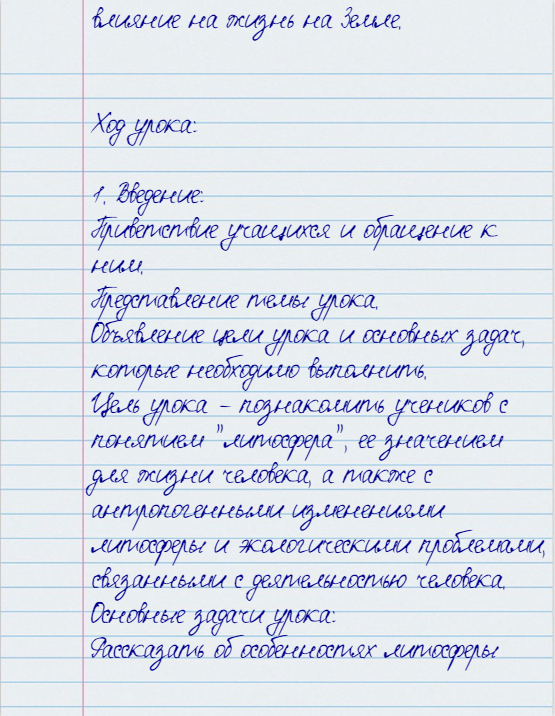 влияние на жизнь на Земле.
Ход урока:
1. Введение:
Приветствие учащихся и обращение к
ним.
Представление темы урока.
Объявление цели урока и основных задач,
которые необходимо выполнить.
Цель урока – познакомить учеников с
понятием "литосфера", ее значением
для жизни человека, а также с
антропогенными изменениями
литосферы и экологическими проблемами,
связанными с деятельностью человека.
Основные задачи урока:
Рассказать об особенностях литосферы